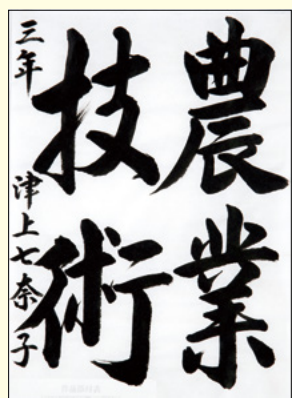 農業
技術
三年 津上七奈子